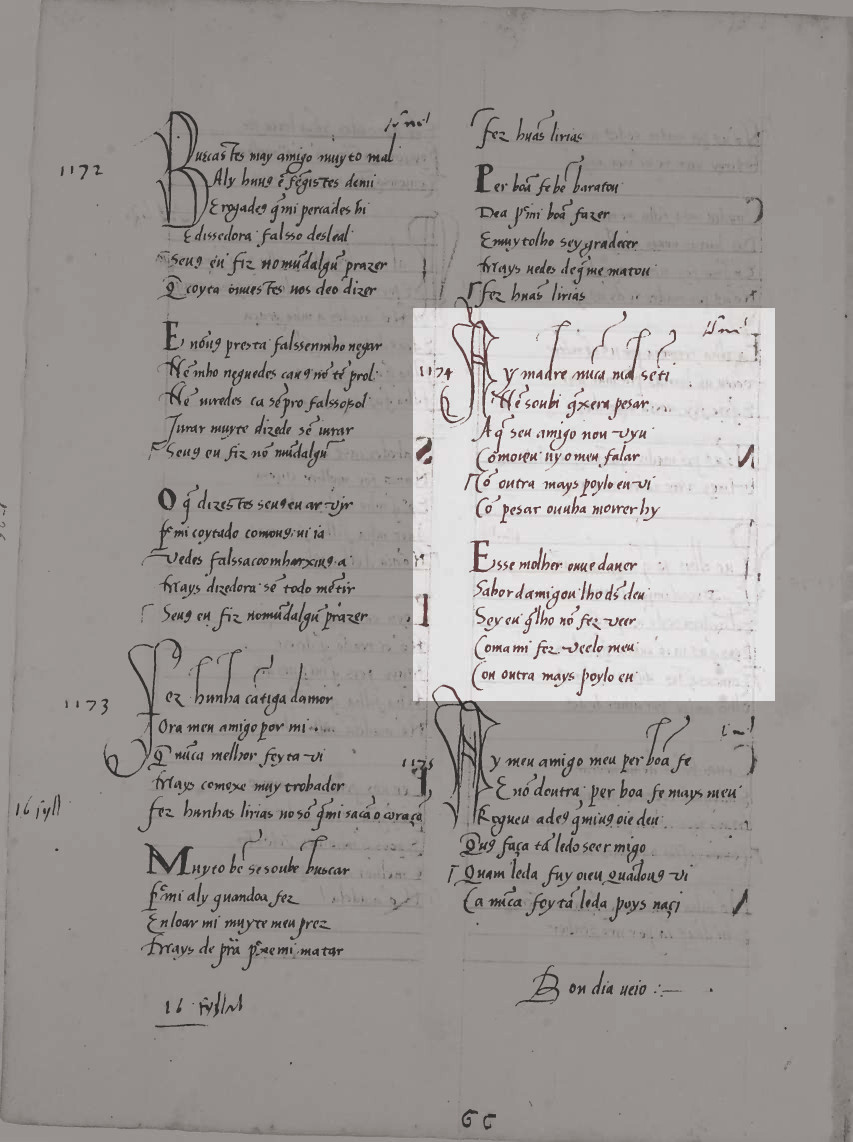 1172
Buscastes may amigo muyto mal
Aly huu9 ẽ fẽgistes demi
E rogade9 q̃mi perçades hi
E dissedora falsso desleal
Seu9 eu fiz nomũdalgũ prazer
Q̃ coyta ouuestes uos deo dizer
E nõu9 presta falssenmho negar
Nẽ mho neguedes cau9 nõ tẽ prol
Nẽ uiredes ca sẽpro falssossol
Jurar muyte dizede sẽ iurar
Seu9 eu fiz nõ mũdalgũ
O q̃ dizestes seu9 eu ar vyr
p̃mi coytado comou9 ui ia
Vedes falssa
Mays dizedora sẽ todo mẽtir
Seu9 eu fiz nomũdalgũ prazer
1173
Fez hunha cãtiga damor
Ora meu amigo por mi
Q̃ nũca melhor feyta vi
Mays comexe muy trobador
Fez hunhas lirias no sõ q̃mi sacã o coraçõ
Muyto bẽ sesoube buscar
P̃mi aly quandoa fez
En loar mi muyte meu prez
Mays de prã p̃xemi matar
16 syll
Fez huãs lirias
Per boã febẽ baratou
Dea p̃mi boã fazer
E muytolho sey gradecer
Mays uedes deq̃me matou
Fez huãs lirias
1174
Ay madre nũca mal sẽti
Nẽ soubi q̃xera pesar
A q̃ seu amigo non vyu
Comoieu uy o meu falar
Cõ outra mays poylo eu vi
Cõ pesar ouuha morrer hy
E sse molher ouue dauer
Sabor damigou lho d̃s deu
Sey eu q̃ lho nõ fez veer
Comami fez veelo meu
Con outra mays poylo eu
1175
Ay meu amigo meu per boa fe
E nõ doutra per boa fe mays meu
Rogueu ade9 q̃miu9 oie deu
Que9 faça tã ledo seer migo
Quam leda fuy oieu quãdou9 vi
Ca nũca foy tã leda poys naçi
Bon dia ueio
66